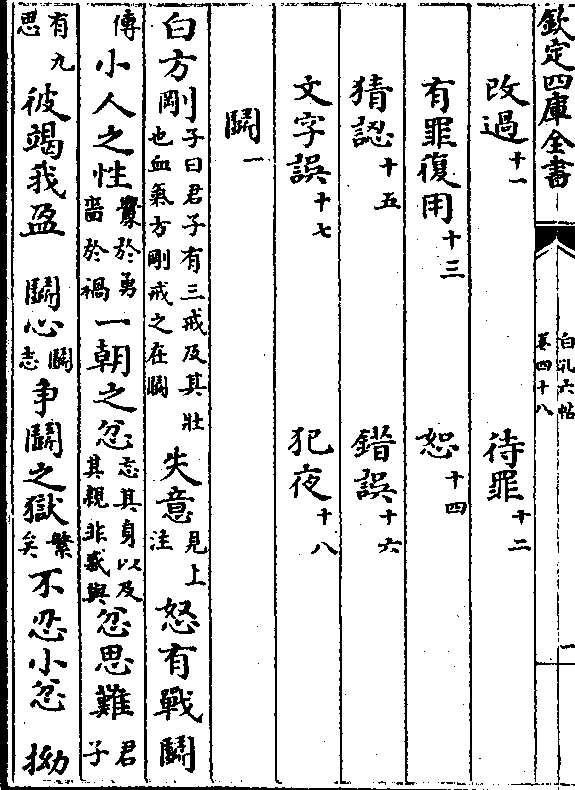 欽定四庫全書
白孔六帖
卷四十八
一
改過十一 待罪十二
有罪復用十三 恕十四
猜認十五 錯誤十六
文字誤十七 犯夜十八
鬭一
白方剛子曰君子有三戒及其壯也血氣方剛戒之在鬭 失意見上注 怒有戰鬭
傳小人之性釁於勇嗇於禍 一朝之忿忘其身以及其親非惑與 忿思難君子
有九思 彼竭我盈 鬭心鬭志 争鬭之獄繁矣 不忍小忿 拗